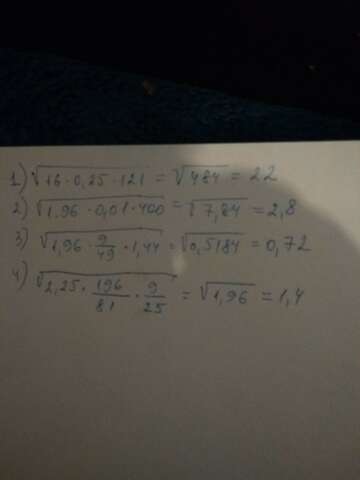 1) √16 · 0,25 · 121 = √484 = 22
2) √1,96 · 0,01 · 400 = √7,84 = 2,8
3) √1,96 · 9/49 · 1,44 = √0,5184 = 0,72
4) √2,25 · 196/81 · 9/25 = √1,96 = 1,4